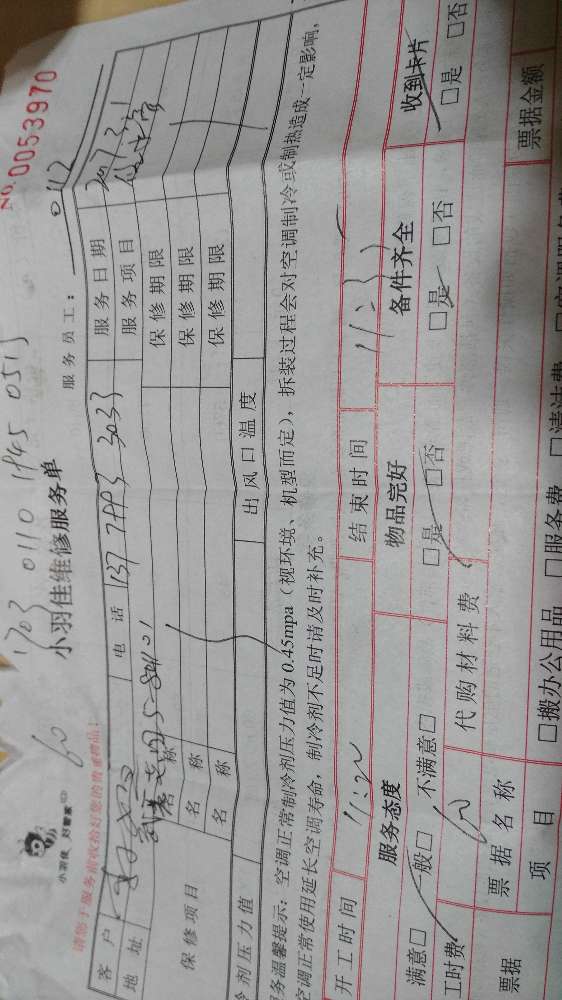 No.0053970
1703 0110 1945 0515
60
小羽佳 好管家
小羽佳维修服务单
服务员工：
0112
请您于服务前收拾好您的贵重赠品！
客户
电话
服务日期
地址
服务项目
保修项目
名称
保修期限
名称
保修期限
名称
保修期限
冷剂压力值
出风口温度
务温馨提示：空调正常制冷剂压力值为0.45mpa（视环境、机型而定），拆装过程会对空调制冷或制热造成一定影响，
空调正常使用延长空调寿命，制冷剂不足时请及时补充。
开工时间
11:20
结束时间
服务态度
物品完好
备件齐全
收到卡片
满意□ 一般□ 不满意□
□是 □否
□是 □否
□是 □否
工时费
60
代购材料费
票据
票据名称
票据金额
项目
□搬办公用品 □服务费 □清洁费